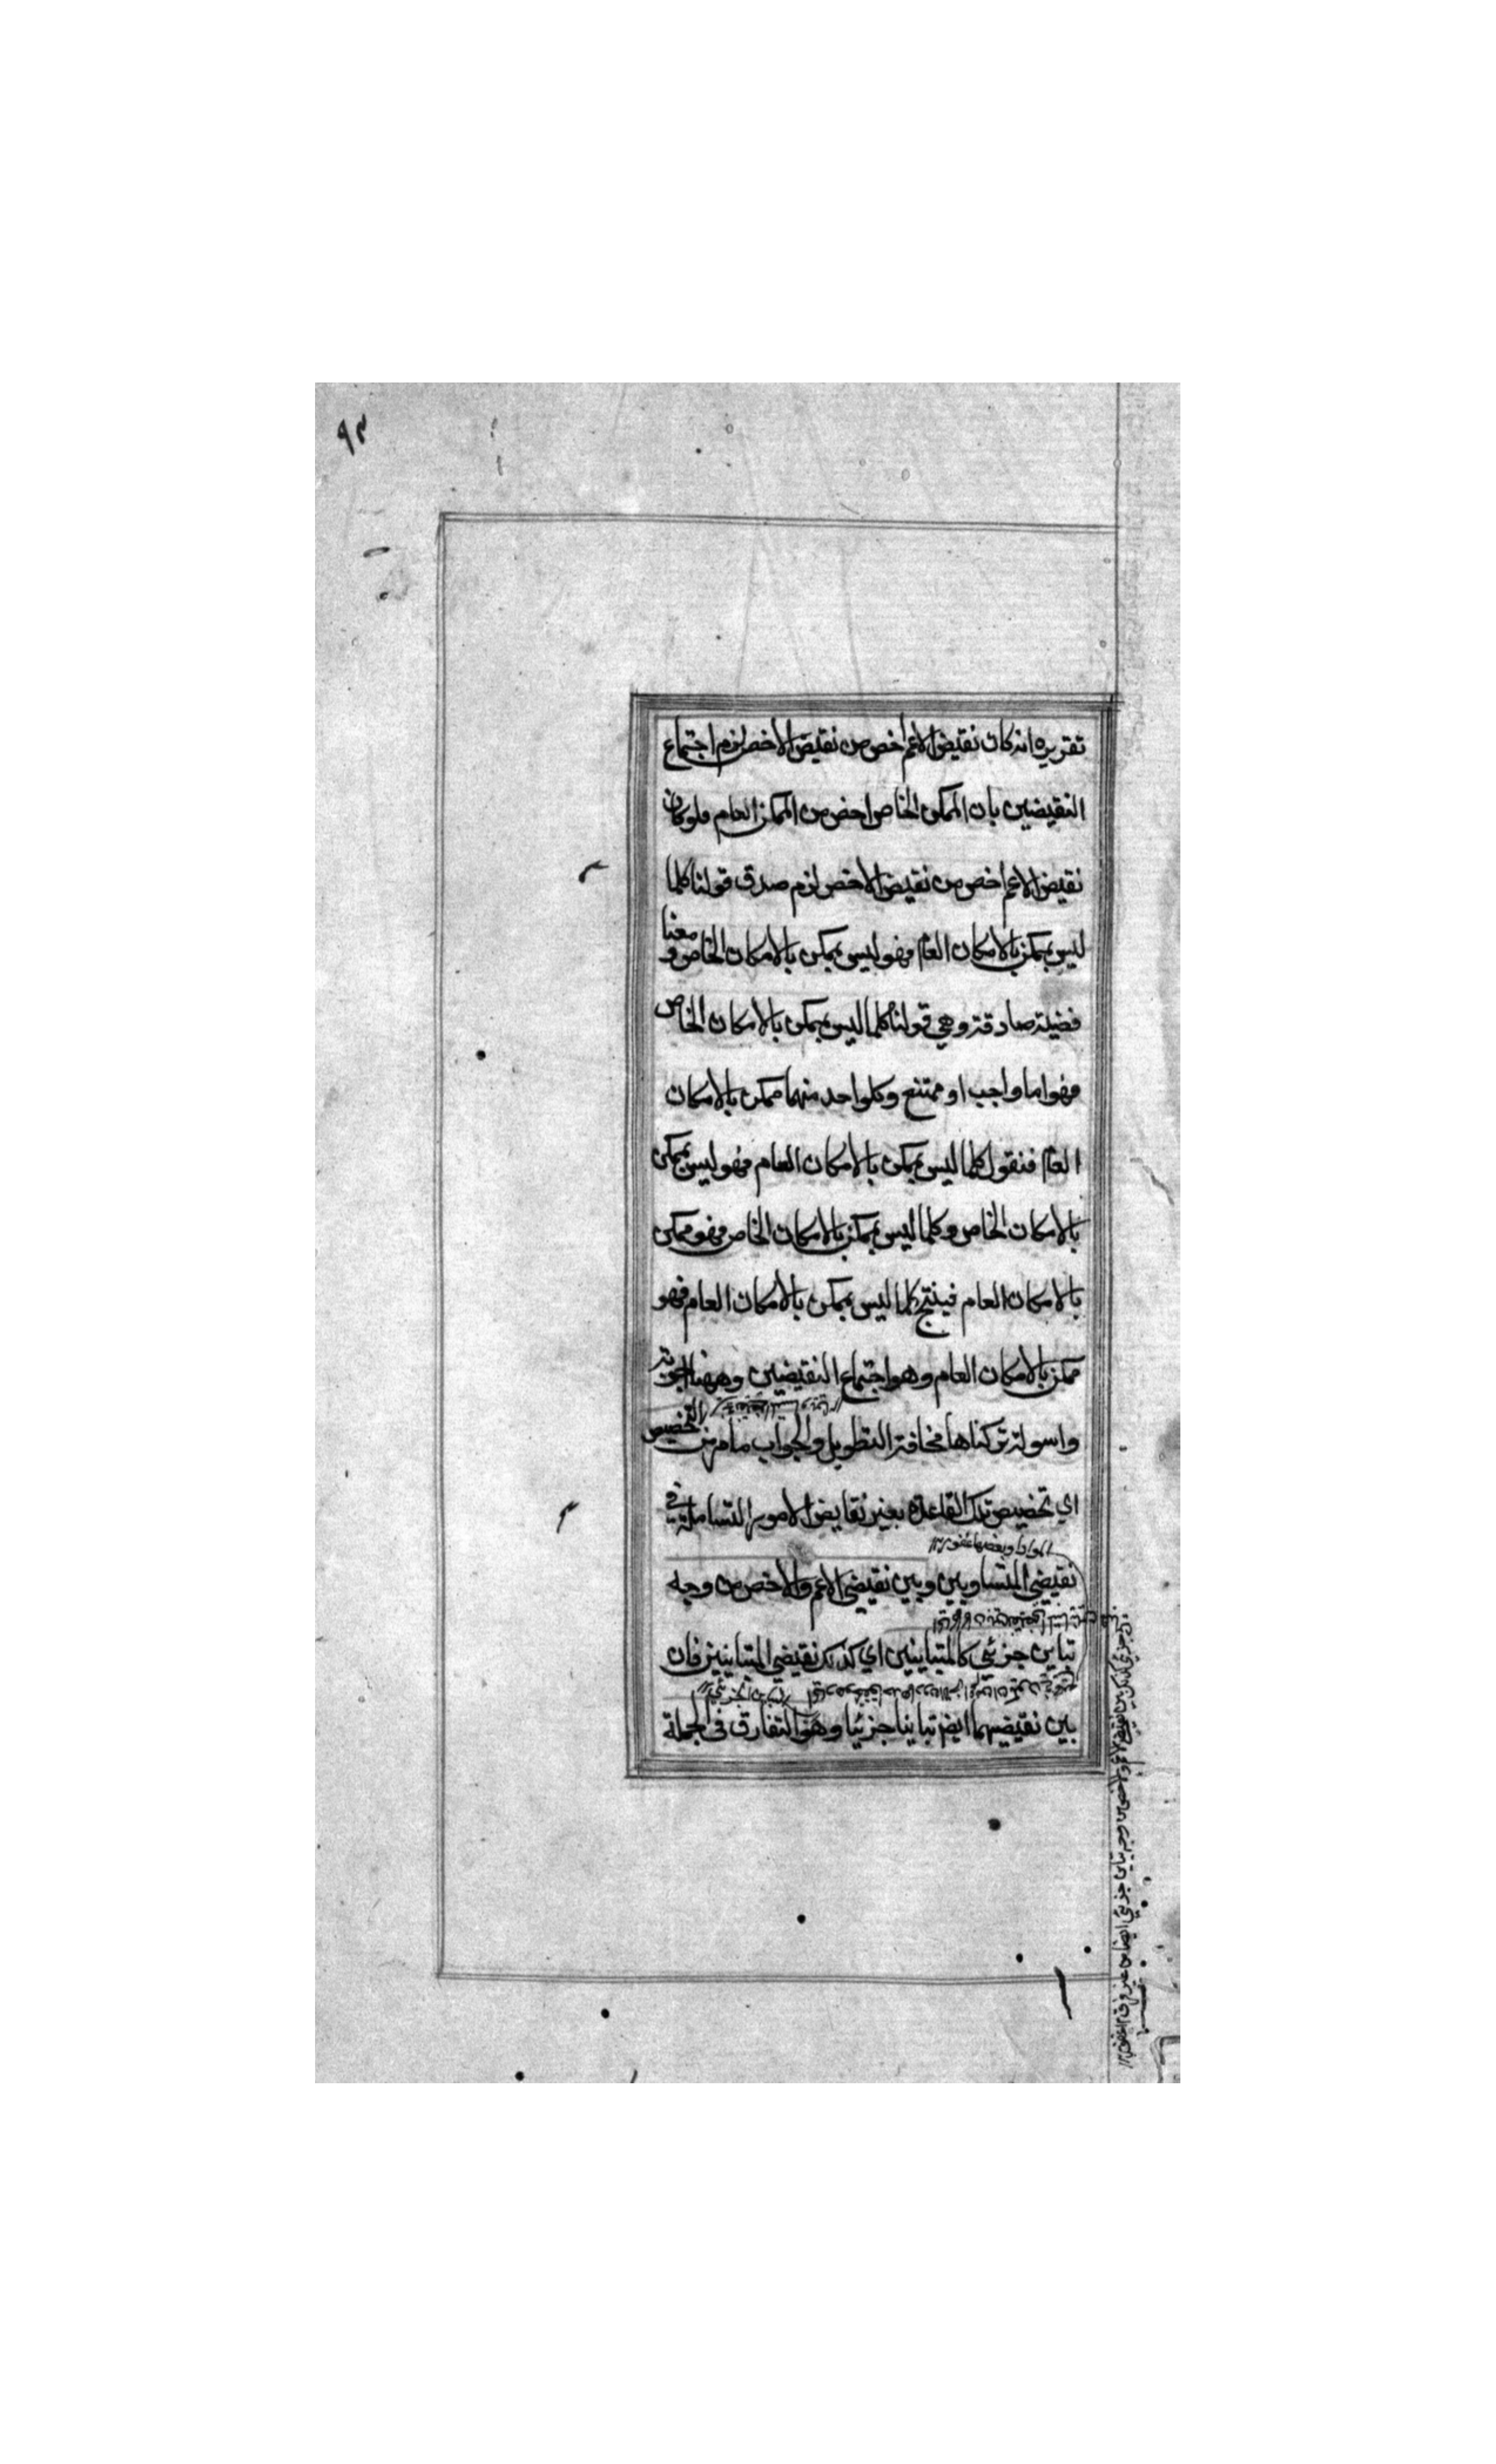 ٩٣
تقريره انه كان نقيض الاعم اخص من نقيض الاخص لزم اجتماع
النقيضين بان الممكن الخاص اخص من الممكن العام فلو كان
نقيض الاعم اخص من نقيض الاخص لزم صدق قولنا كلما
ليس بممكن بالامكان العام فهو ليس بممكن بالامكان الخاص و معنا
قضية صادقة وهي قولنا كلما ليس بممكن بالامكان الخاص
فهو اما واجب او ممتنع وكلواحد منهما ممكن بالامكان
العام فنقول كلما ليس بممكن بالامكان العام فهو ليس بممكن
بالامكان الخاص وكلما ليس بممكن بالامكان الخاص فهو ممكن
بالامكان العام فينتج كلما ليس بممكن بالامكان العام فهو
ممكن بالامكان العام وهو اجتماع النقيضين وههنا اجوبة
واسولة تركناها مخافة التطويل والجواب ما مر من التخصيص
اي تخصيص تلك القاعدة بغير نقايض الامور الشاملة في
نقيضي المتساويين وبين نقيضي الاعم والاخص من وجه
تباين جزئي كالمتباينين اي كذلك نقيضي المتباينين فان
بين نقيضيهما ايضم تباينا جزئيا وهو التفارق في الجملة